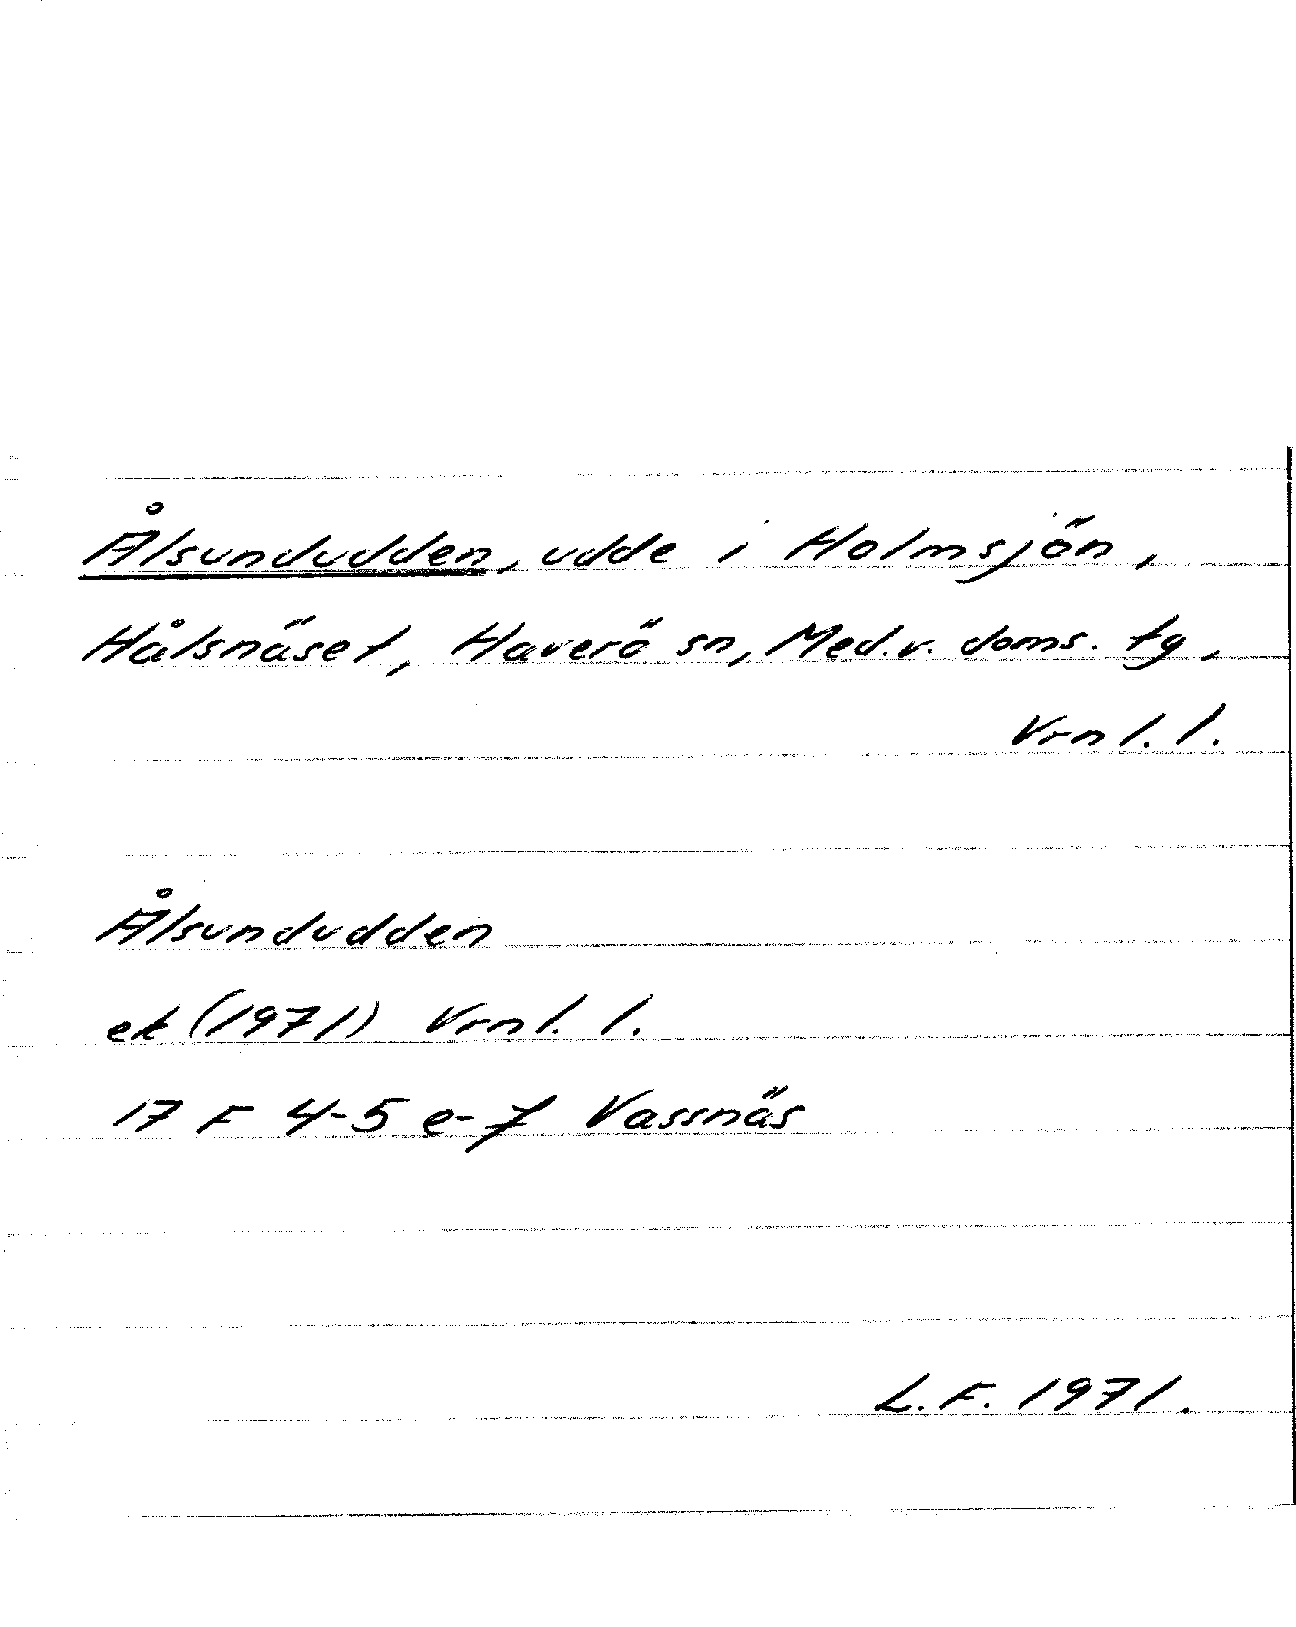 Ålsundudden, udde i Holmsjön,
Hålsnäset, Haverö sn, Med.v. doms. tg,
Vrnl. l.
Ålsundudden
ek (1971) Vrnl. l.
17 F 4-5 e-f Vassnäs
L.F. 1971.